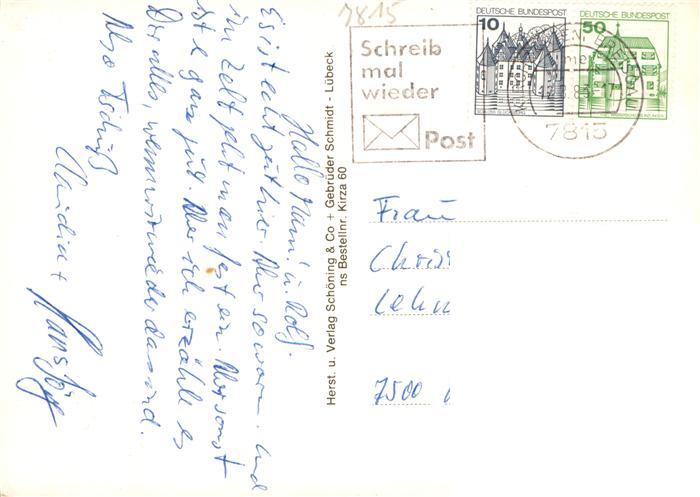 7815
Schreib
mal
wieder
Post
DEUTSCHE BUNDESPOST
10
DEUTSCHE BUNDESPOST
50
7815
Hallo u. Rolf.
Es ist echt gut hier. Aber so warm. Und
im Zelt geht man fast ein. Aber sonst
ist's ganz gut. Aber ich erzähle es
Dir alles, wenn wir wieder da sind.
Also Tschüß
Claudia +
Hansjörg
Herst. u. Verlag Schöning & Co + Gebrüder Schmidt - Lübeck
ns Bestellnr. Kirza 60
Frau
Chris
Lehn
7500